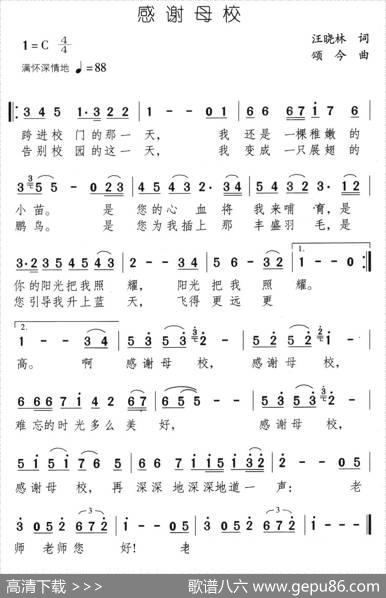 感谢母校
1=C 4/4
汪晓林 词
满怀深情地 ♩=88
颂今 曲
345 1·322 1--01 66 6717 6
跨进校 门的那一 天， 我 还是 一棵稚嫩的
告别校 园的这一 天， 我 变成 一只展翅的
355--023 4543 3232 23·12
小苗。 是 您的心 血将 我来哺 育，是
鹏鸟。 是 您为我插上 那 丰盛羽 毛，是
3·2354543 2--34 56-32 1.1--0
你的阳光把我照 耀， 阳光 把我 照 耀。
您引导我升上蓝 天， 飞得 更远 更
2.1--34 5353532- 525212-
高。 啊 感谢母 校， 感谢母 校，
6667142 67 655- 535332-
难忘的时光多么 美 好， 感谢母 校，
515176 5 4 6 1161532 2--0 5
感谢母 校， 再 深深 地深深地道一 声： 老
3 052 02 672 3 052 02 672
师 老师您 好! 老
高清下载 >>>
歌谱八六 www.gepu86.com